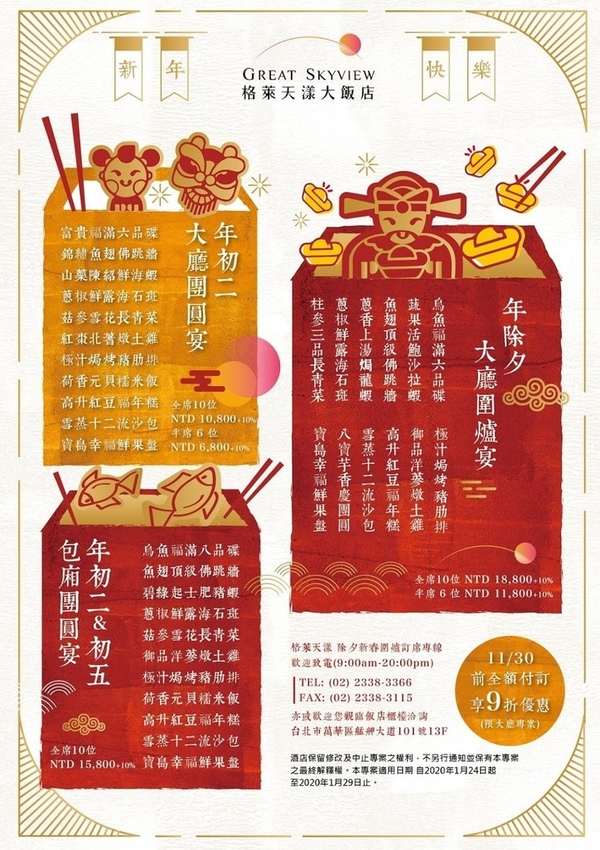 新年
快樂
GREAT SKYVIEW
格萊天漾大飯店
年初二
大廳團圓宴
富貴福滿六品碟
錦繡魚翅佛跳牆
山藥陳紹鮮海蝦
蔥椒鮮露海石斑
菇參雪花長青菜
紅棗北蓍燉土雞
極汁焗烤豬肋排
荷香元貝糯米飯
高升紅豆福年糕
雪蒸十二流沙包
寶島幸福鮮果盤
全席10位
NTD 10,800+10%
半席 6 位
NTD 6,800+10%
年除夕
大廳圍爐宴
烏魚福滿六品碟
蔬果活鮑沙拉蝦
魚翅頂級佛跳牆
蔥香上湯焗龍蝦
蔥椒鮮露海石斑
桂參三品長青菜
極汁焗烤豬肋排
御品洋蔘燉土雞
高升紅豆福年糕
雪蒸十二流沙包
八寶芋香慶團圓
寶島幸福鮮果盤
全席10位 NTD 18,800+10%
半席 6 位 NTD 11,800+10%
年初二&初五
包廂團圓宴
烏魚福滿八品碟
魚翅頂級佛跳牆
碧綠起士肥豬蝦
蔥椒鮮露海石斑
菇參雪花長青菜
御品洋蔘燉土雞
極汁焗烤豬肋排
荷香元貝糯米飯
高升紅豆福年糕
雪蒸十二流沙包
寶島幸福鮮果盤
全席10位
NTD 15,800+10%
格萊天漾 除夕新春圍爐訂席專線
歡迎致電(9:00am-20:00pm)
TEL: (02) 2338-3366
FAX: (02) 2338-3115
亦或歡迎您親臨飯店櫃檯洽詢
台北市萬華區艋舺大道101號13F
11/30
前全額付訂
享9折優惠
(限大廳專案)
酒店保留修改及中止專案之權利，不另行通知並保有本專案
之最終解釋權。本專案適用日期 自2020年1月24日起
至2020年1月29日止。